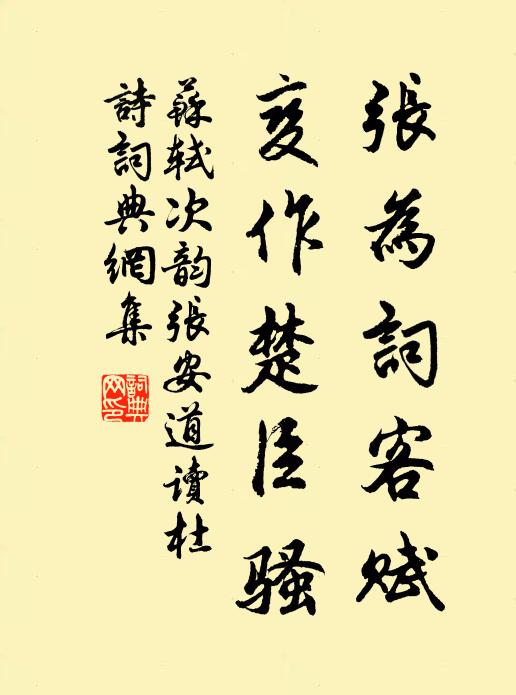 張為詞客賦
変作楚臣騷
蘇軾次韵張安道讀杜
詩詞典網集
詞典
网印